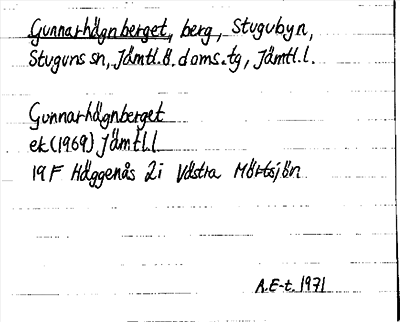 Gunnarhögnberget, berg, Stugubyn,
Stuguns sn, Jämtl.ö.doms.tg, Jämtl.l.
Gunnarhögnberget
ek(1969) Jämtl.l
19F Häggenås 2i Västra Mörtsjön
A.E-t. 1971